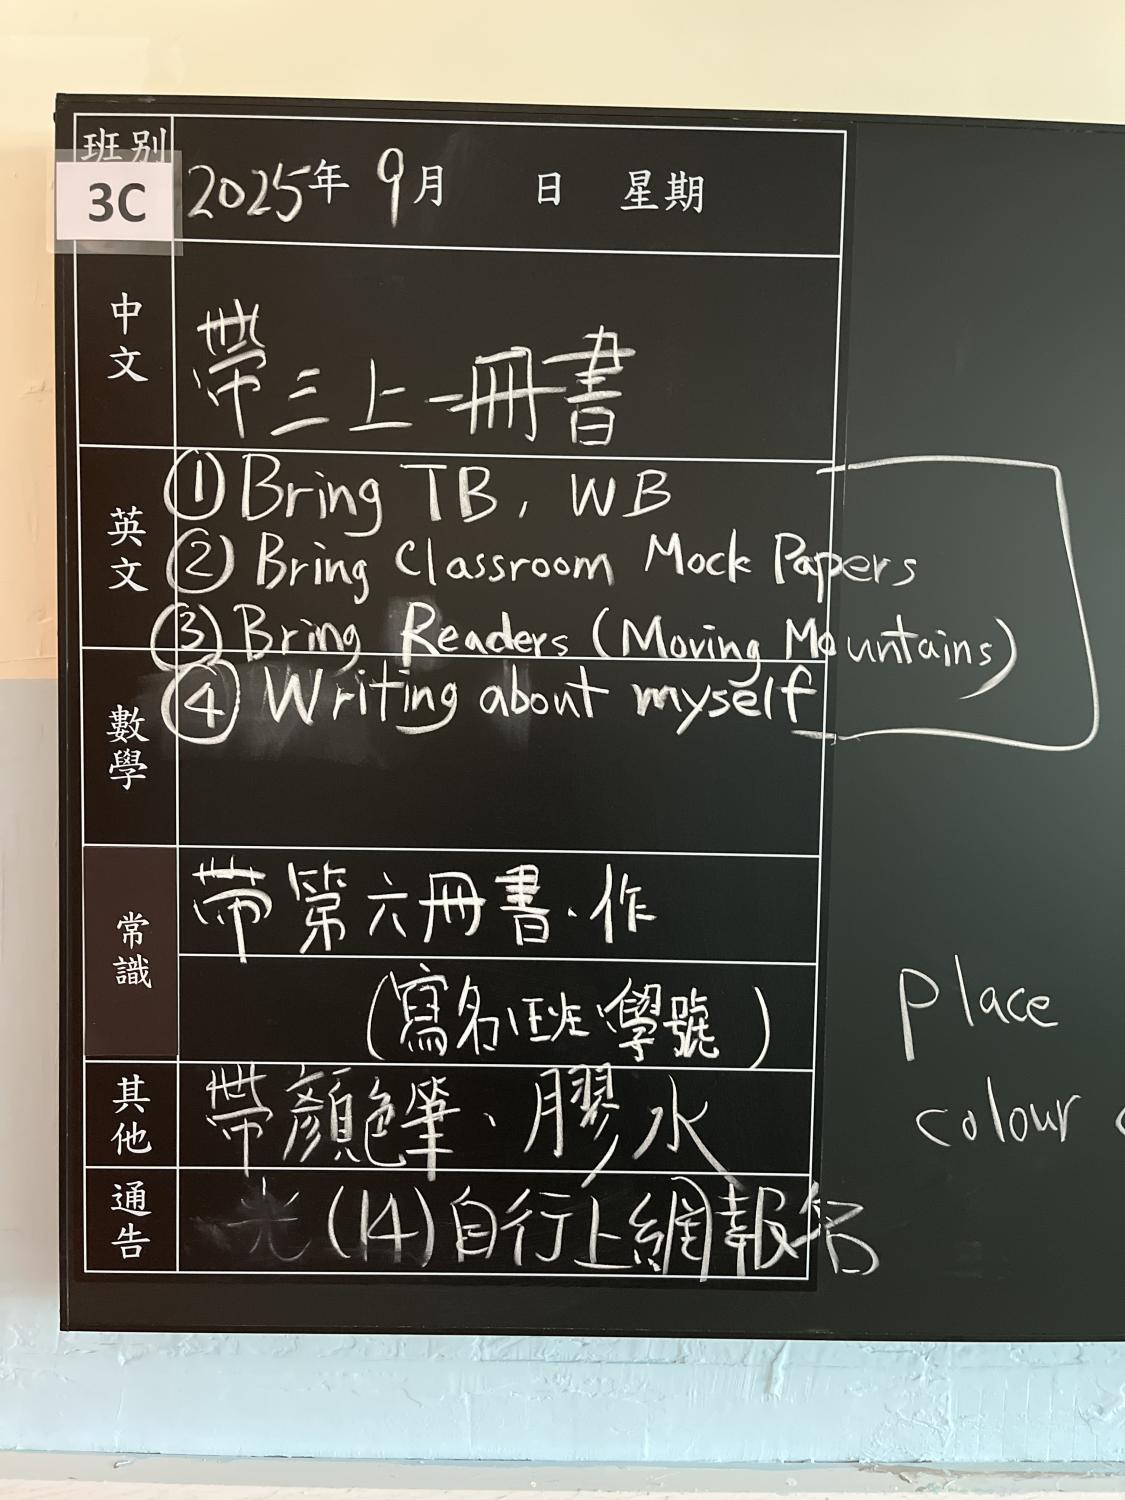 班別
3C
2025年 9月 日 星期
中文
帶三上一冊書
英文
① Bring TB, WB
② Bring Classroom Mock Papers
③ Bring Readers (Moving Mountains)
④ Writing about myself
數學
常識
帶第六冊書、作
(寫名、班、學號)
其他
帶顏色筆、膠水
通告
(14)自行上網報名
place
colour